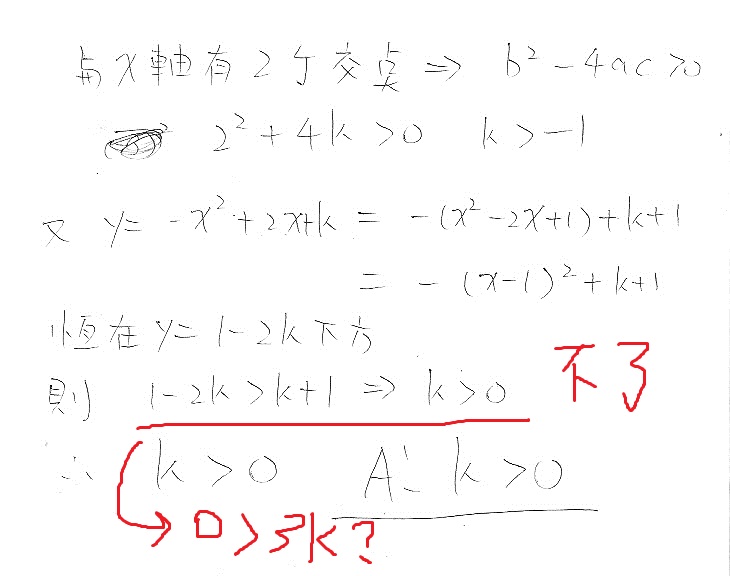 与x軸有2个交点⇒ b²-4ac>0
2²+4k>0 k>-1
又 y= -x²+2x+k = -(x²-2x+1)+k+1
= -(x-1)²+k+1
恆在y=1-2k下方
則 1-2k>k+1 ⇒ k>0 不了
∴ k>0 A: k>0
0>3k?